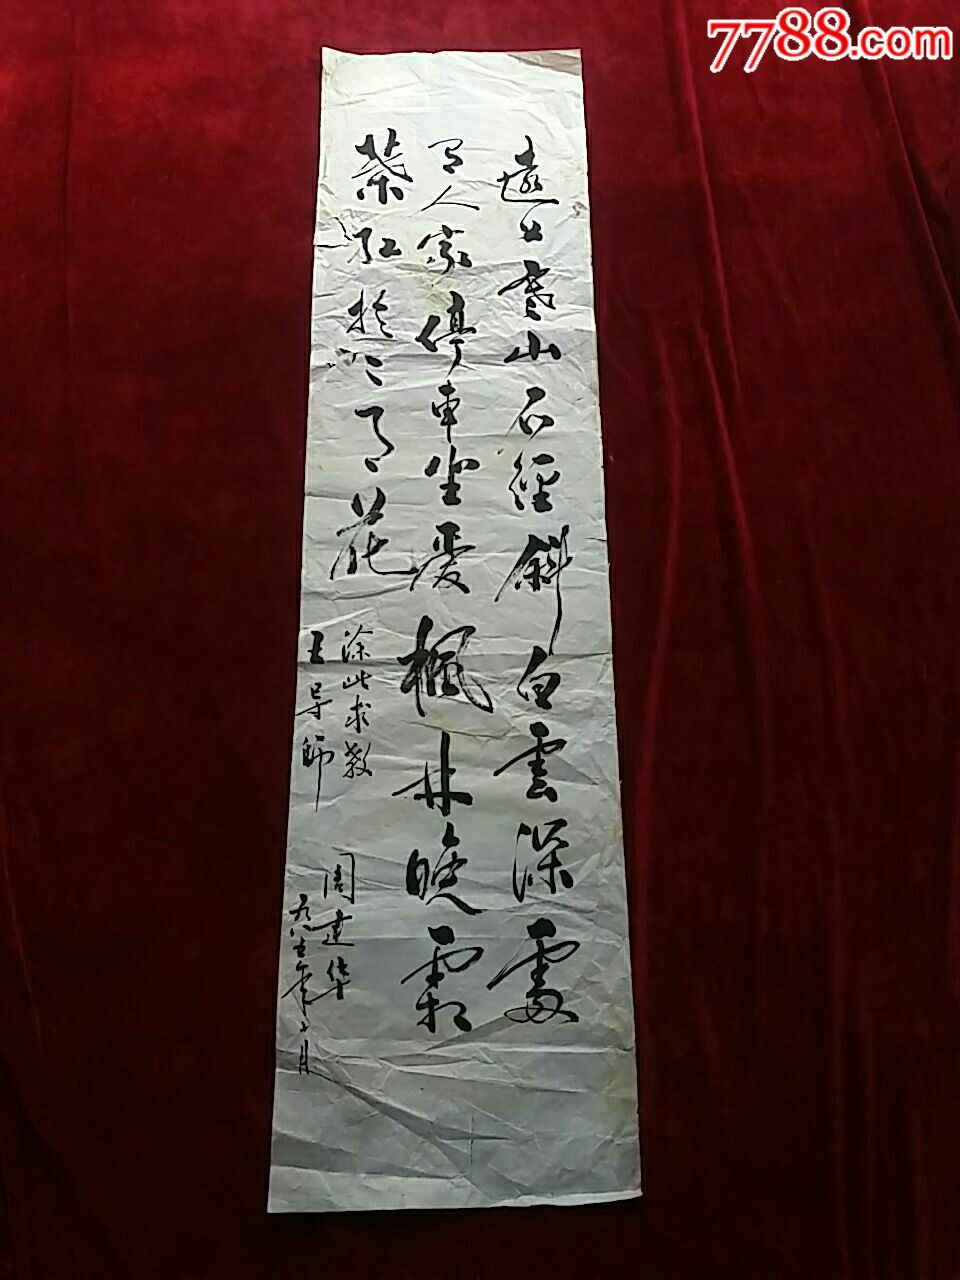 7788.com
遠上寒山石徑斜白雲深處
有人家停車坐愛楓林晚霜
葉紅於二月花
涂此求教
王导師
周建华
八五年六月